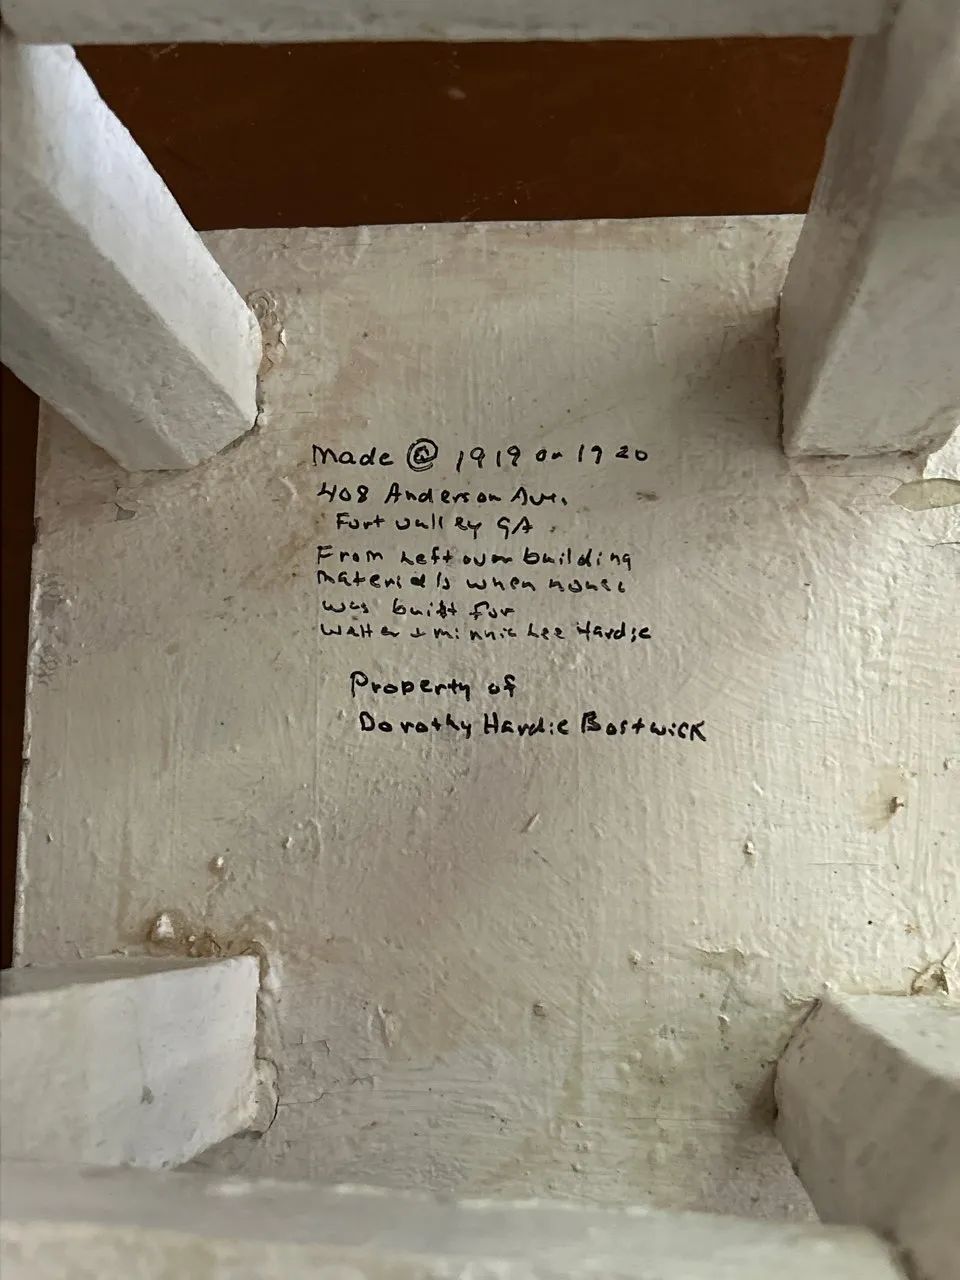 Made @ 1919 or 1920
408 Anderson Ave.
Fort Valley GA.
From Left over building
materials when house
was built for
Walter & Minnie Lee Hardie
Property of
Dorothy Hardie Bostwick